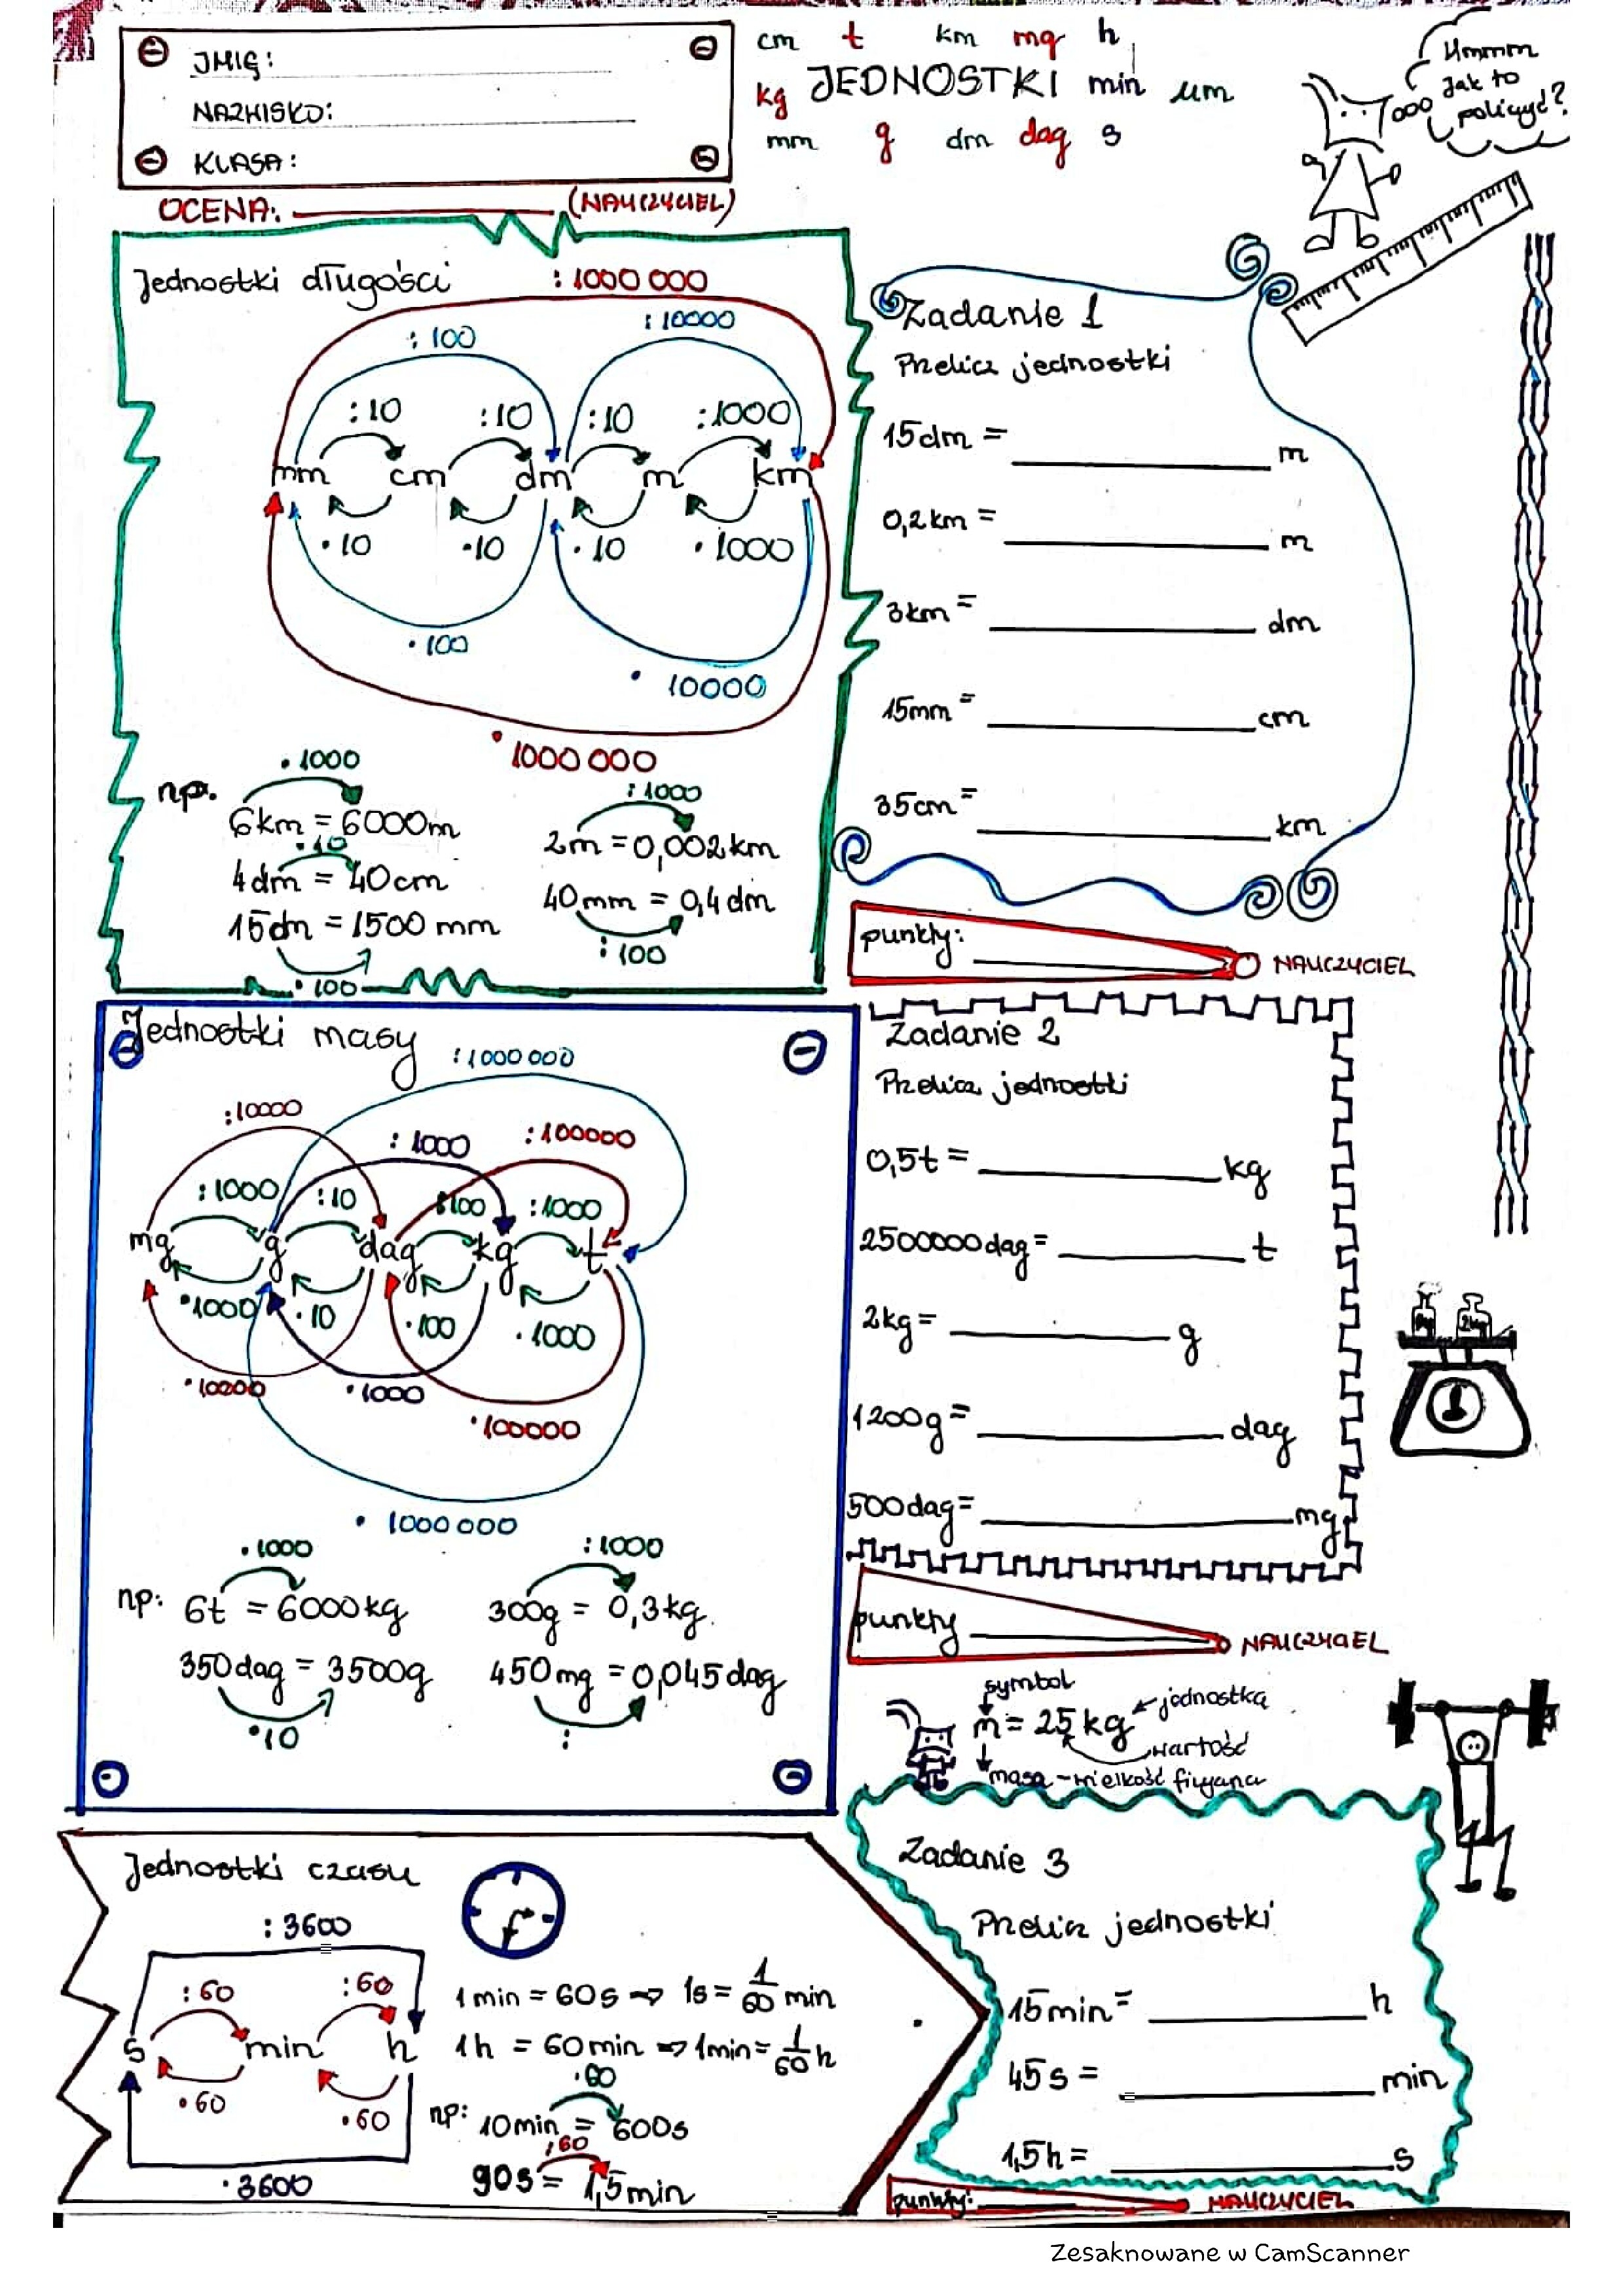 IMIĘ:
NAZWISKO:
KLASA:
OCENA: (NAUCZYCIEL)
cm t km mg h
kg JEDNOSTKI min µm
mm g dm dag s
Hmmm
Jak to
policzyć?
Jednostki długości
:1000 000
:100 :10000
:10 :10 :10 :1000
mm cm dm m km
·10 ·10 ·10 ·1000
·100
·10000
·1000 000
np.
·1000
6km = 6000m
·10
4dm = 40cm
15dm = 1500 mm
·100
:1000
2m = 0,002km
40mm = 0,4dm
:100
Zadanie 1
Przelicz jednostki
15dm = m
0,2km = m
3km = dm
15mm = cm
35cm = km
punkty: NAUCZYCIEL
Jednostki masy
:1000 000
:10000
:1000 :100000
:1000 :10 :100 :1000
mg g dag kg t
·1000 ·10 ·100 ·1000
·10000 ·1000
·100000
·1000 000
·1000 :1000
np: 6t = 6000kg 300g = 0,3kg.
350dag = 3500g 450mg = 0,045dag
·10 :
Zadanie 2
Przelicz jednostki
0,5t = kg
2500000dag = t
2kg = g
1200g = dag
500dag = mg
punkty NAUCZYCIEL
symbol
m = 25kg jednostka
wartość
masa - wielkość fizyczna
Jednostki czasu
:3600
:60 :60
s min h
·60 ·60
·3600
1min = 60s => 1s = 1/60 min
1h = 60min => 1min = 1/60 h
·60
np: 10min = 600s
:60
90s = 1,5min
Zadanie 3
Przelicz jednostki
15min = h
45s = min
1,5h = s
punkty: NAUCZYCIEL
Zesaknowane w CamScanner